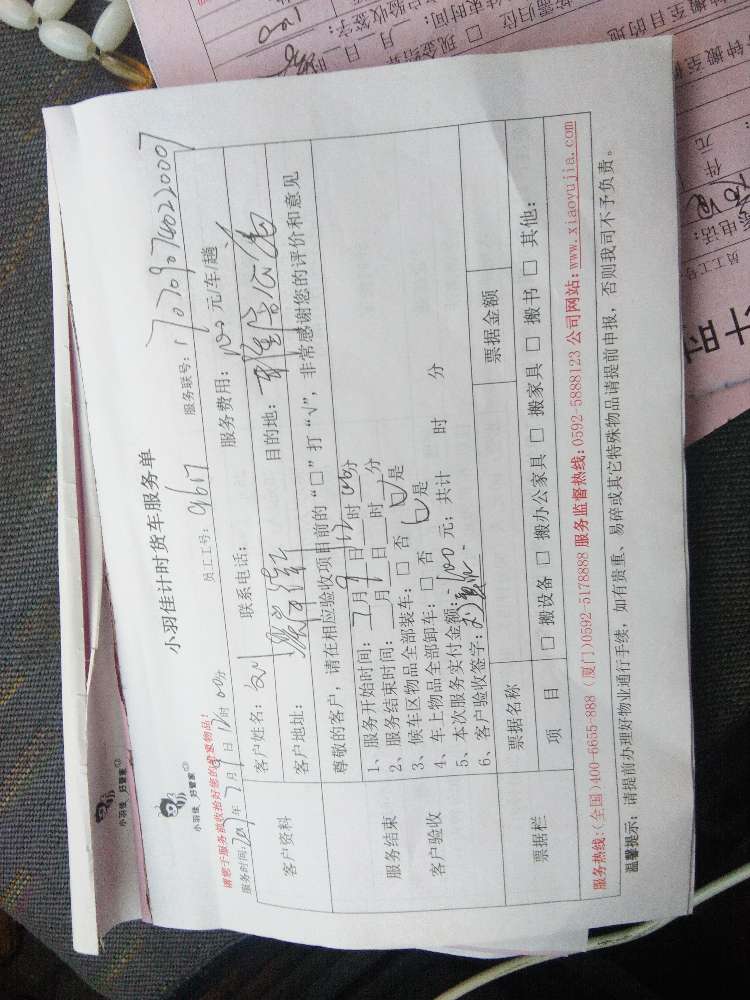 小羽佳 好管家
小羽佳 好管家
小羽佳计时货车服务单
请您于服务前收拾好您的搬家物品！
服务时间: 年7月9日12时00分 员工工号: 9617 服务联号: 17070907402220007
客户资料
客户姓名: 刘 联系电话: 服务费用: 100元/车/趟
客户地址: 目的地:
尊敬的客户，请在相应验收项目前的“□”打“√”，非常感谢您的评价和意见
服务结束
客户验收
1、服务开始时间: 7月9日12时00分
2、服务结束时间: 月 日 时 分
3、候车区物品全部装车: □ 否 ☑是
4、车上物品全部卸车: □ 否 ☑是
5、本次服务实付金额: 100元; 共计 时 分
6、客户验收签字:
票据栏
票据名称 票据金额
项 目 □ 搬设备 □ 搬办公家具 □ 搬家具 □ 搬书 □ 其他:
服务热线:(全国)400-6655-888 (厦门)0592-5178888 服务监督热线:0592-5888123 公司网站:www.xiaoyujia.com
温馨提示: 请提前办理好物业通行手续，如有贵重、易碎或其它特殊物品请提前申报，否则我司不予负责。
计时
员工工号:
电话:
元
搬至目的地
现金结算
结束时间:
验收签字:
月 日